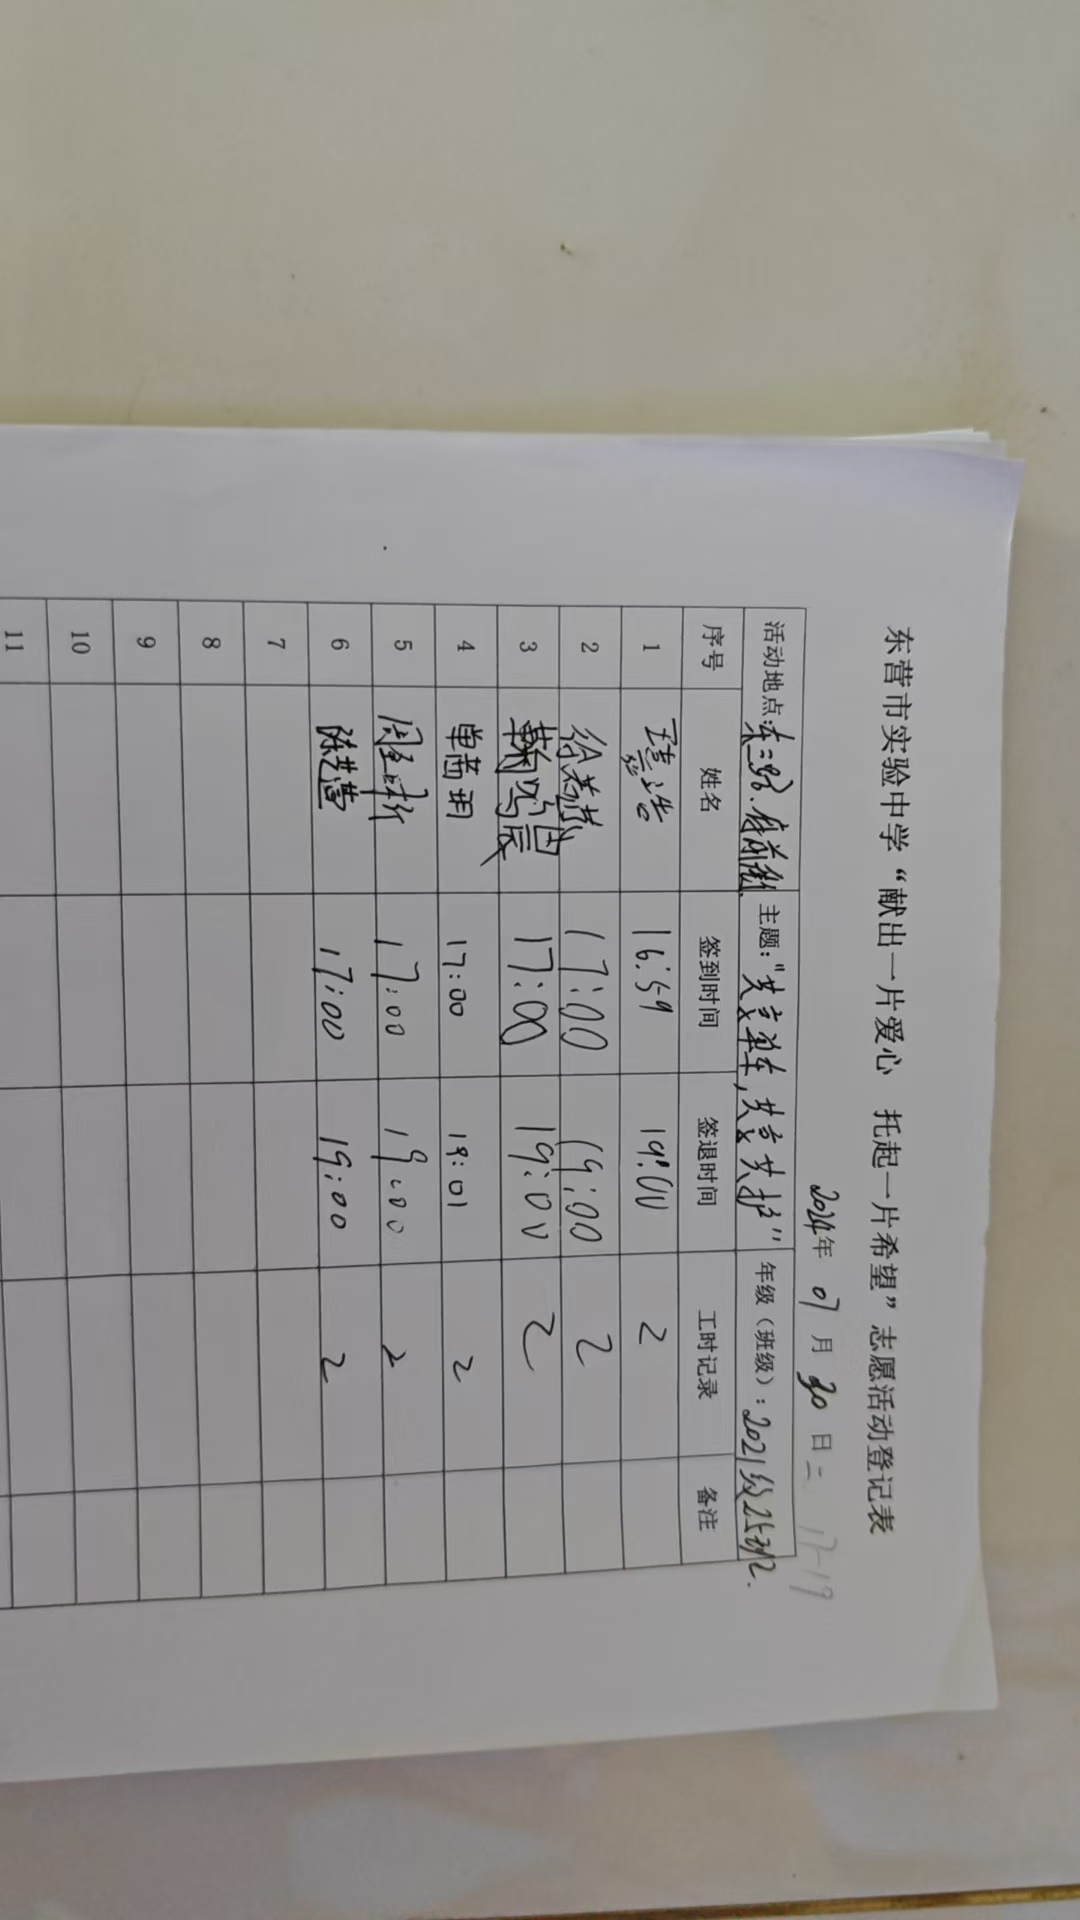 东营市实验中学“献出一片爱心 托起一片希望”志愿活动登记表
2024年 07 月 30 日 二. 17-19
活动地点:东三路.府前街. 主题:“共享单车,共享共护” 年级(班级):2021级25班.
序号 姓名 签到时间 签退时间 工时记录 备注
1 16:59 19:00 2
2 17:00 19:00 2
3 17:00 19:00 2
4 单茜玥 17:00 19:01 2
5 17:00 19:00 2
6 17:00 19:00 2
7
8
9
10
11